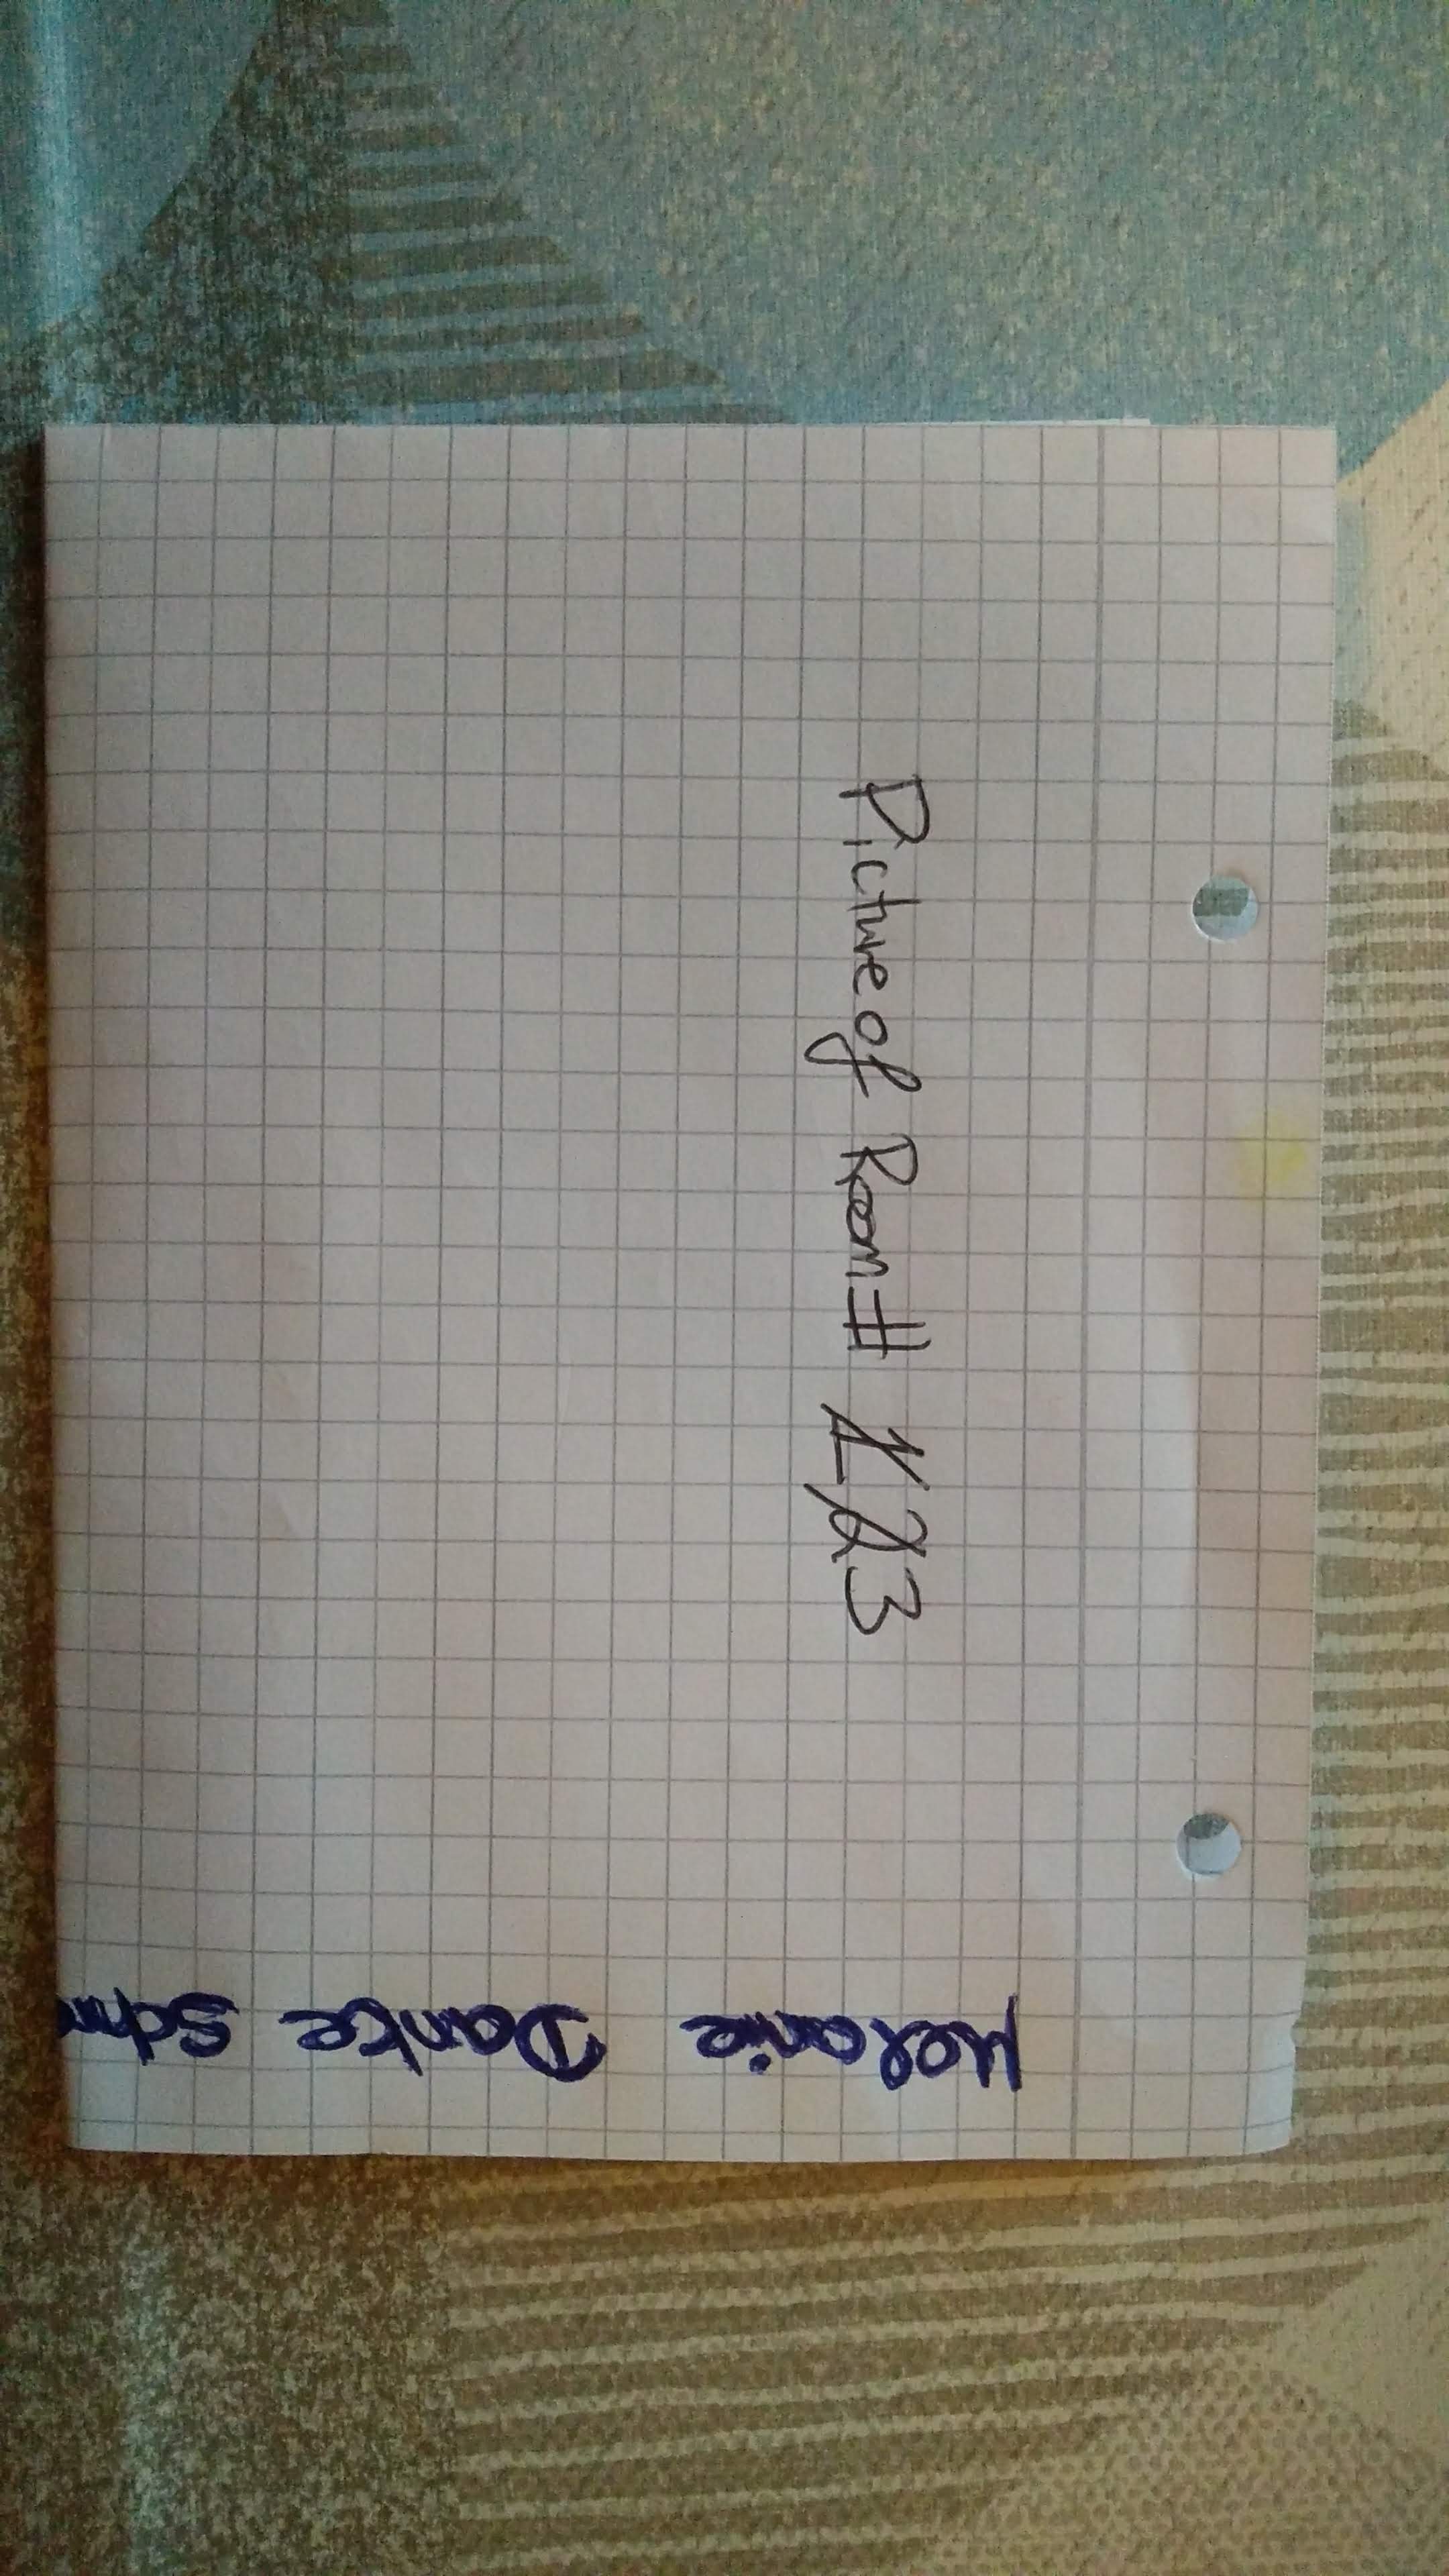 Picture of Room # 123
Melanie Dante Schm